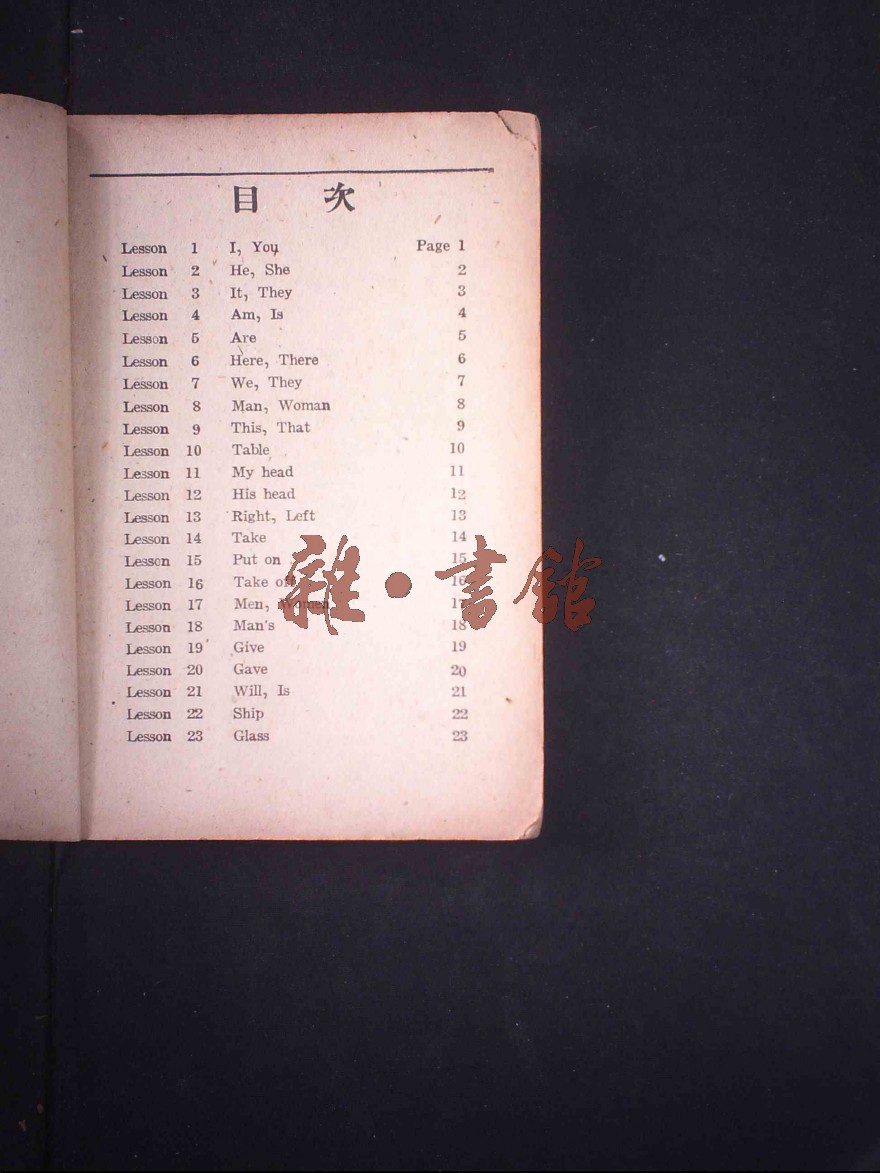 目 次
Lesson 1 I, You Page 1
Lesson 2 He, She 2
Lesson 3 It, They 3
Lesson 4 Am, Is 4
Lesson 5 Are 5
Lesson 6 Here, There 6
Lesson 7 We, They 7
Lesson 8 Man, Woman 8
Lesson 9 This, That 9
Lesson 10 Table 10
Lesson 11 My head 11
Lesson 12 His head 12
Lesson 13 Right, Left 13
Lesson 14 Take 14
Lesson 15 Put on 15
Lesson 16 Take off 16
Lesson 17 Men, Women 17
Lesson 18 Man's 18
Lesson 19 Give 19
Lesson 20 Gave 20
Lesson 21 Will, Is 21
Lesson 22 Ship 22
Lesson 23 Glass 23
雜·書館